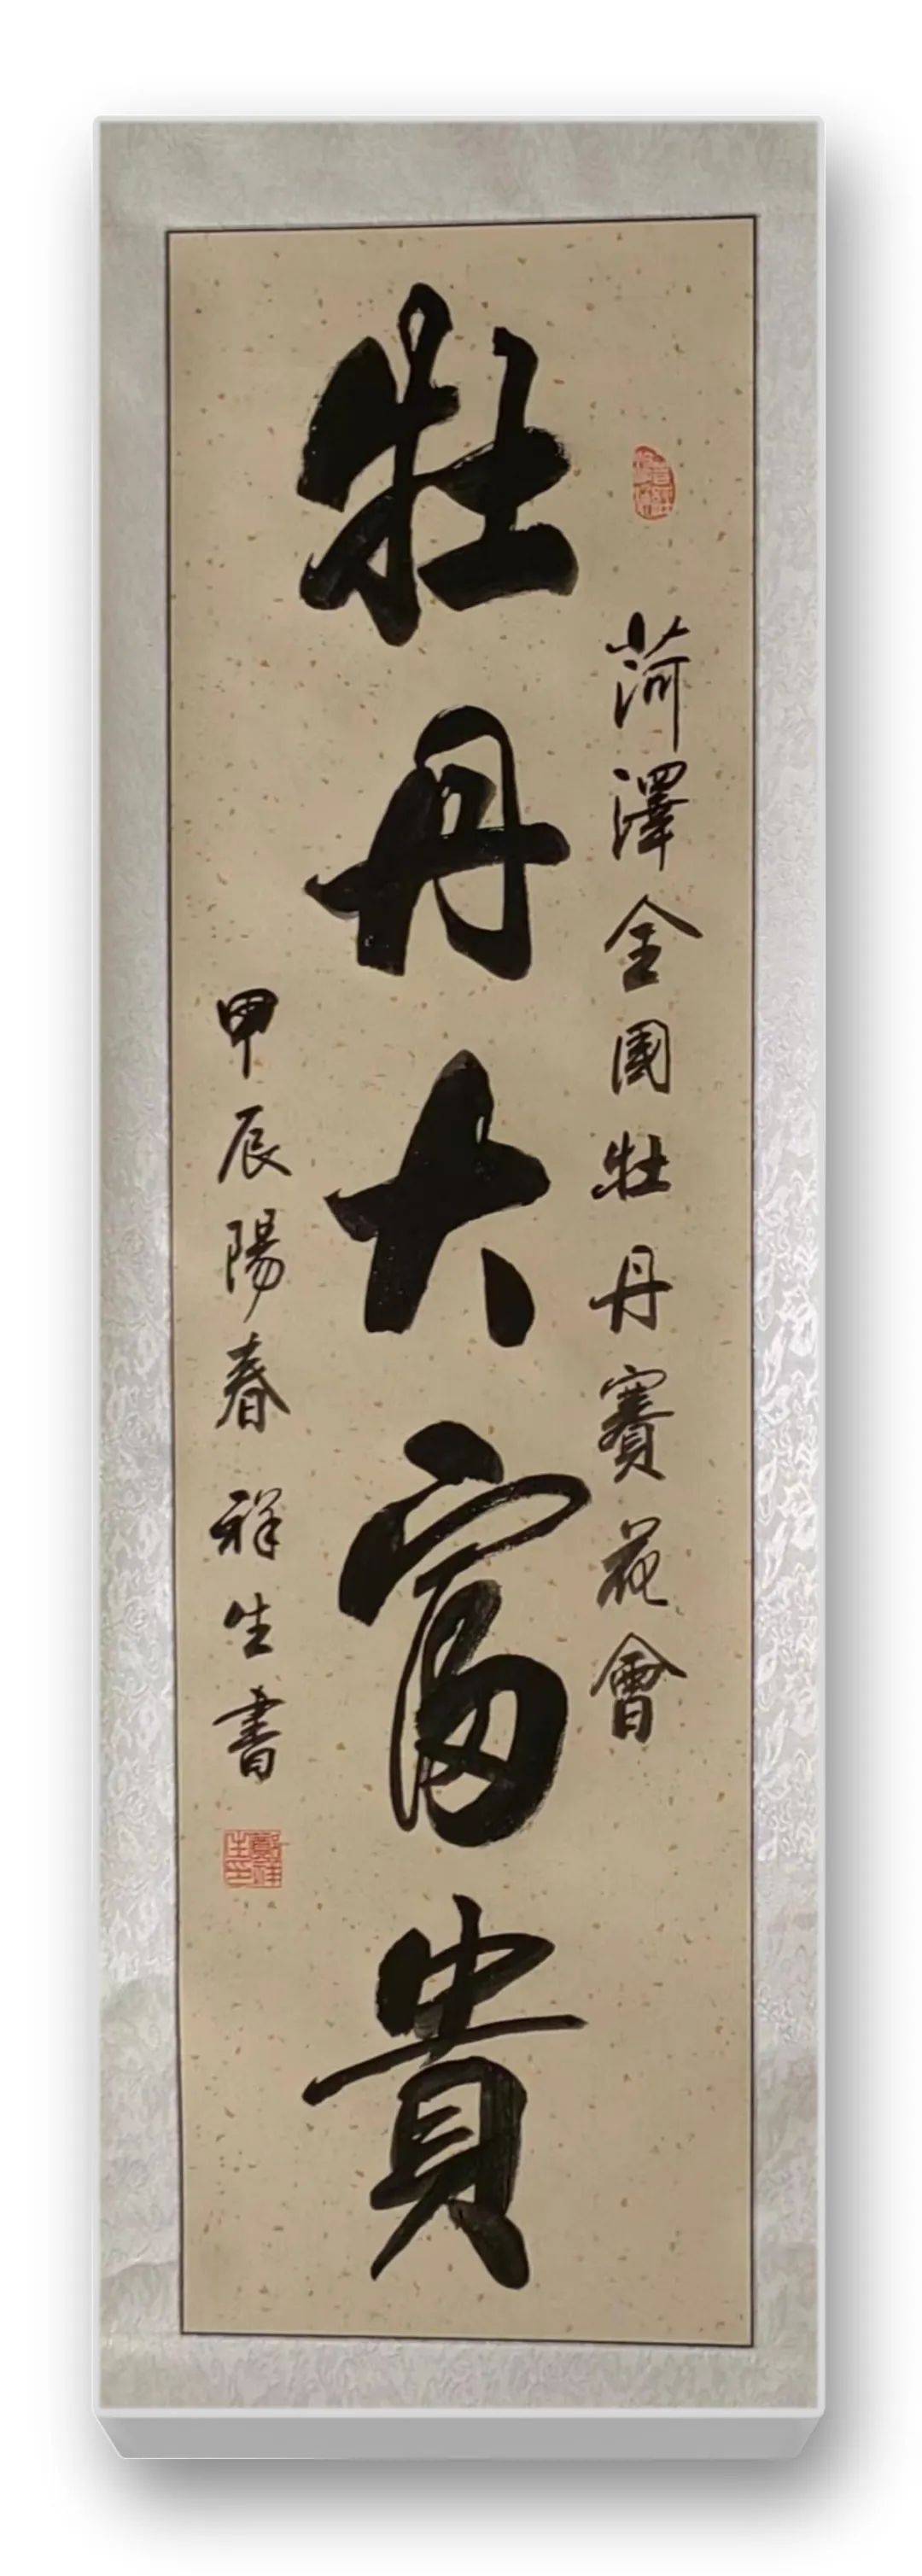 菏澤全國牡丹賽花會
牡丹大富貴
甲辰陽春 祥生書